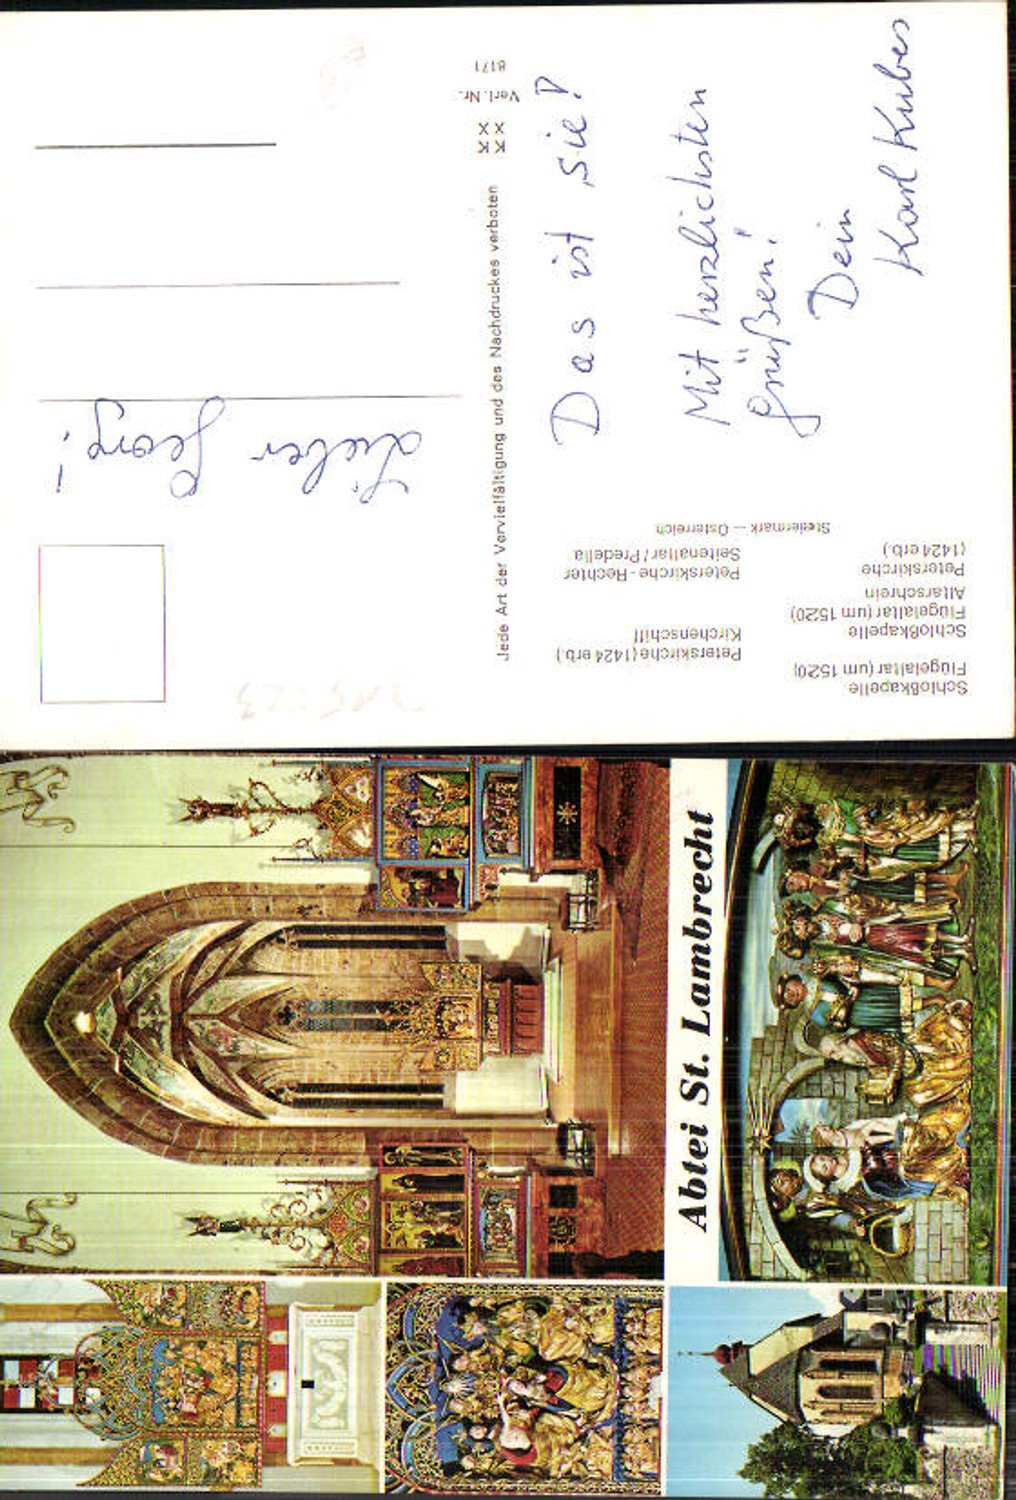 Lieber Georg!
Das ist sie!
Mit herzlichsten
Grüßen!
Dein
Karl Kubes
Jede Art der Vervielfältigung und des Nachdruckes verboten
KK
XX
Verl.-Nr.:
8171
Schloßkapelle
Flügelaltar (um 1520)
Schloßkapelle
Flügelaltar (um 1520)
Altarschrein
Peterskirche
(1424 erb.)
Peterskirche (1424 erb.)
Kirchenschiff
Peterskirche - Rechter
Seitenaltar / Predella
Steiermark — Österreich
Abtei St. Lambrecht